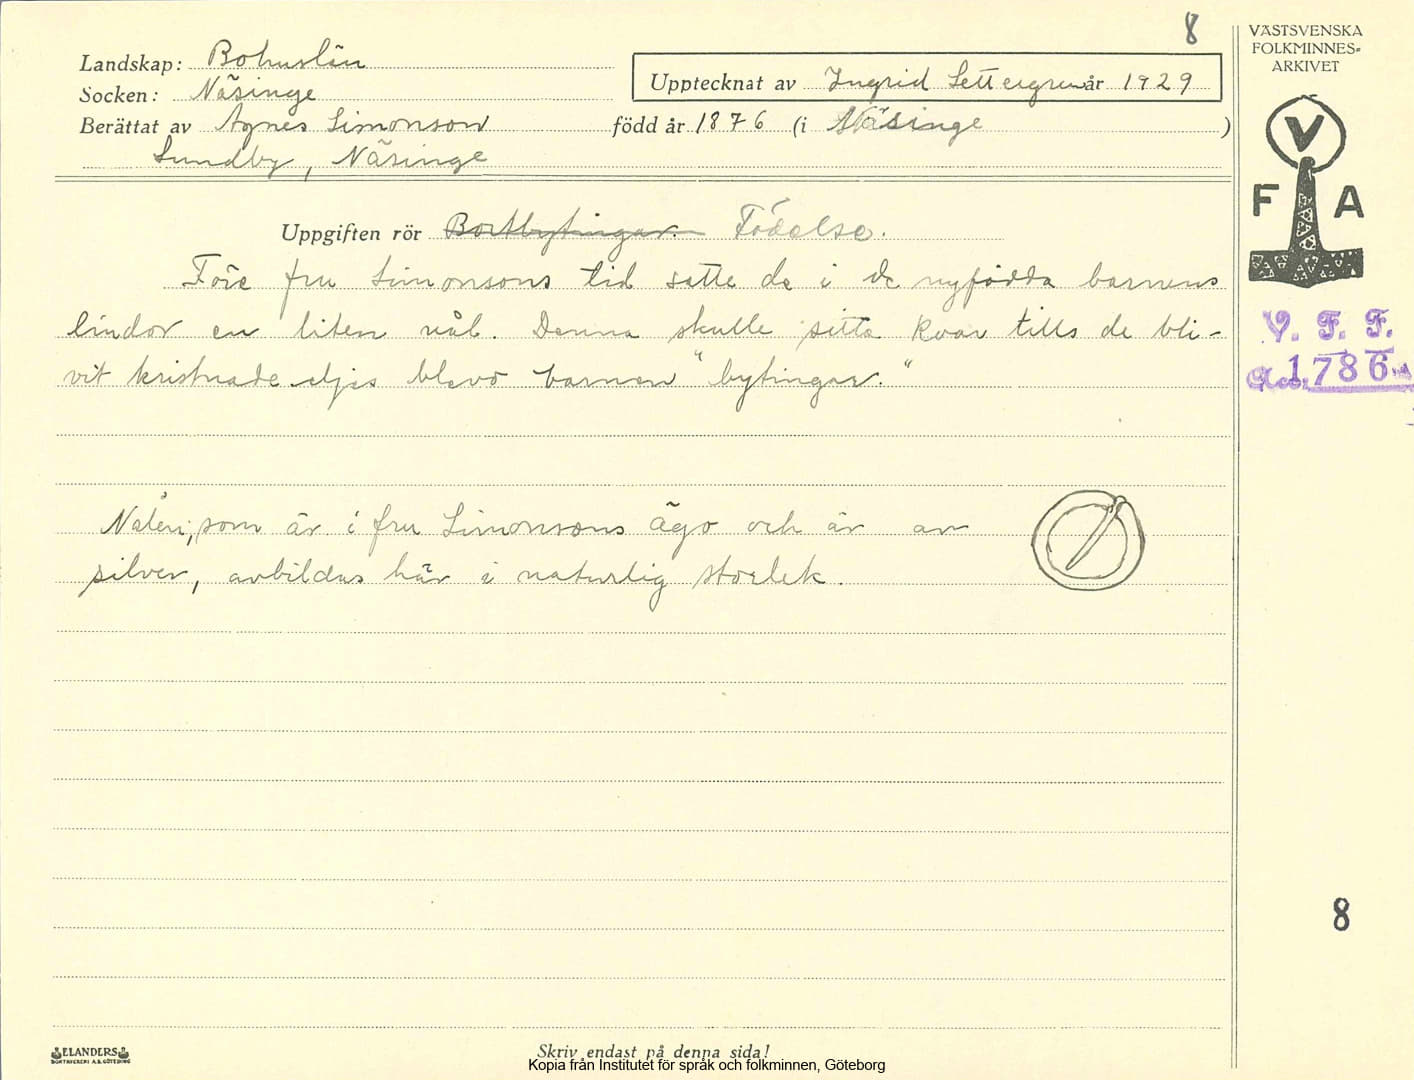 8
VÄSTSVENSKA
FOLKMINNES-
ARKIVET
Landskap: Bohuslän
Upptecknat av Ingrid Settergren år 1929
Socken: Näsinge
Berättat av Agnes Simonson född år 1876 (i Näsinge)
Sundby, Näsinge
V
F A
Uppgiften rör Bortbytingar. Födelse.
Före fru Simonsons tid satte de i de nyfödda barnens
lindor en liten nål. Denna skulle sitta kvar tills de bli-
vit kristnade eljes blevo barnen "bytingar."
V. F. F.
Acc. 1786
Nålen, som är i fru Simonsons ägo och är av
silver, avbildas här i naturlig storlek.
8
ELANDERS
BOKTRYCKERI A.B. GÖTEBORG
Skriv endast på denna sida!
Kopia från Institutet för språk och folkminnen, Göteborg